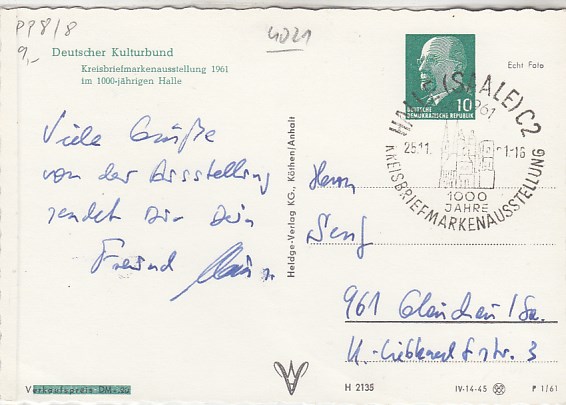 PP8/8
9,-
4021
Deutscher Kulturbund
Kreisbriefmarkenausstellung 1961
im 1000-jährigen Halle
Echt Foto
10
DEUTSCHE
DEMOKRATISCHE REPUBLIK
HALLE (SAALE) C2
1961
25.11.
1-16
1000
JAHRE
KREISBRIEFMARKENAUSSTELLUNG
Viele Grüße
von der Ausstellung
sendet Dir Dein
Freund
Heldge-Verlag KG., Köthen/Anhalt
Herrn
Senf
961 Glauchau/Sa.
K.-Liebknechtstr. 3
Verkaufspreis DM -,20
H 2135
IV-14-45
P 1/61